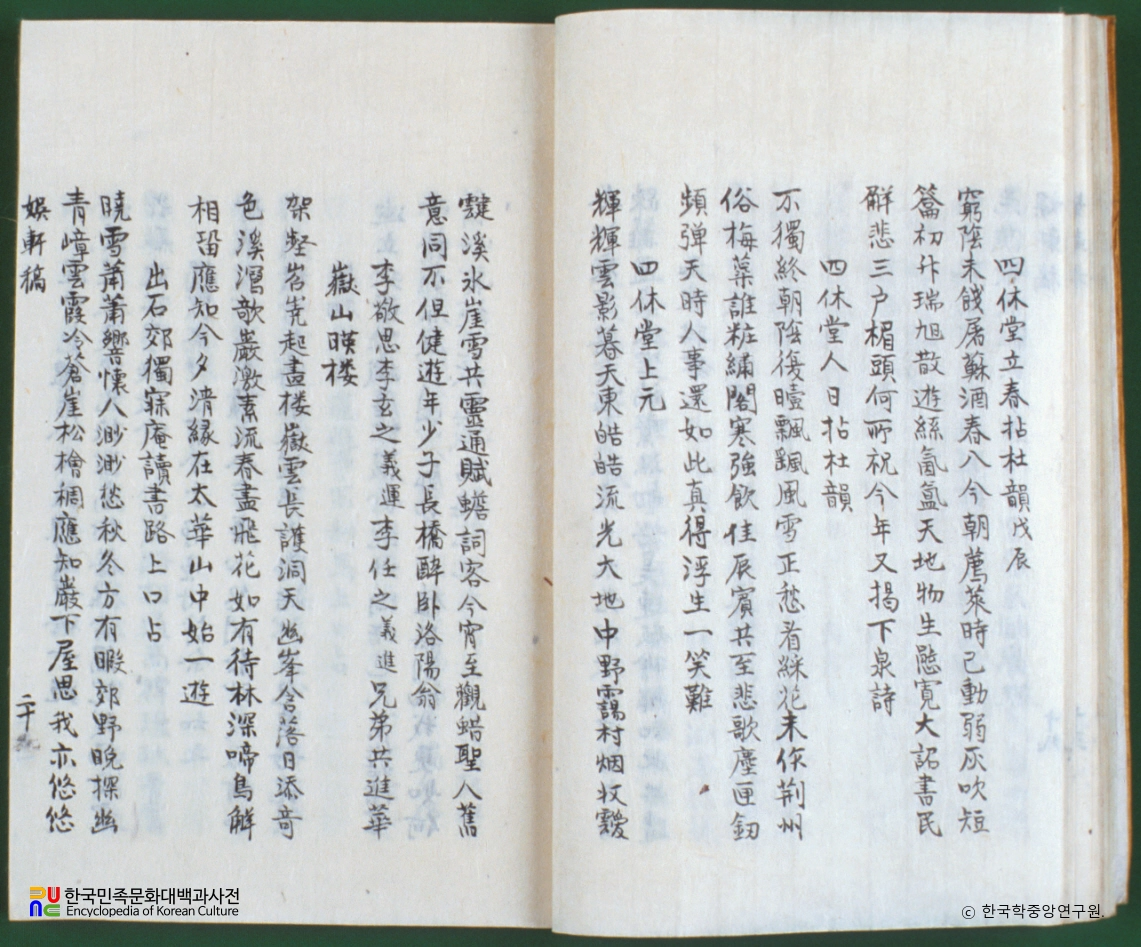 四休堂立春拈杜韻戊辰
窮陰未餞屠蘇酒春入今朝薦菜時已動弱灰吹短
籥初升瑞旭散遊絲氤氳天地物生懸寬大詔書民
觧悲三戶楣頭何所祝今年又揭下泉詩
四休堂人日拈杜韻
不獨終朝陰復曀飄飄風雪正愁看綵花未作荆州
俗梅蘂誰粧繡閣寒強飲佳辰賓共至悲歌塵匣釰
頻弹天時人事還如此真得浮生一笑難
四休堂上元
輝輝雲影暮天東皓皓流光大地中野靄村烟收靉
靆溪氷崖雪共靈通賦蟾詞客今宵至觀蜡聖人舊
意同不但健遊年少子長橋醉卧洛陽翁
李敬思李玄之義運李任之義進兄弟共進華
嶽山暎楼
架壑岧嶤起畫楼嶽雲長護洞天幽峯含落日添奇
色溪漲歌巖激素流春盡飛花如有待林深啼鳥觧
相留應知今夕清緣在太華山中始一遊
出石郊獨寐庵讀書路上口占
曉雪萧蕭響懐人渺渺愁秋冬方有暇郊野晚探幽
青嶂雲霞冷蒼崖松檜稠應知巖下屋思我亦悠悠
娛軒稿
二十
한국민족문화대백과사전
Encyclopedia of Korean Culture
© 한국학중앙연구원.